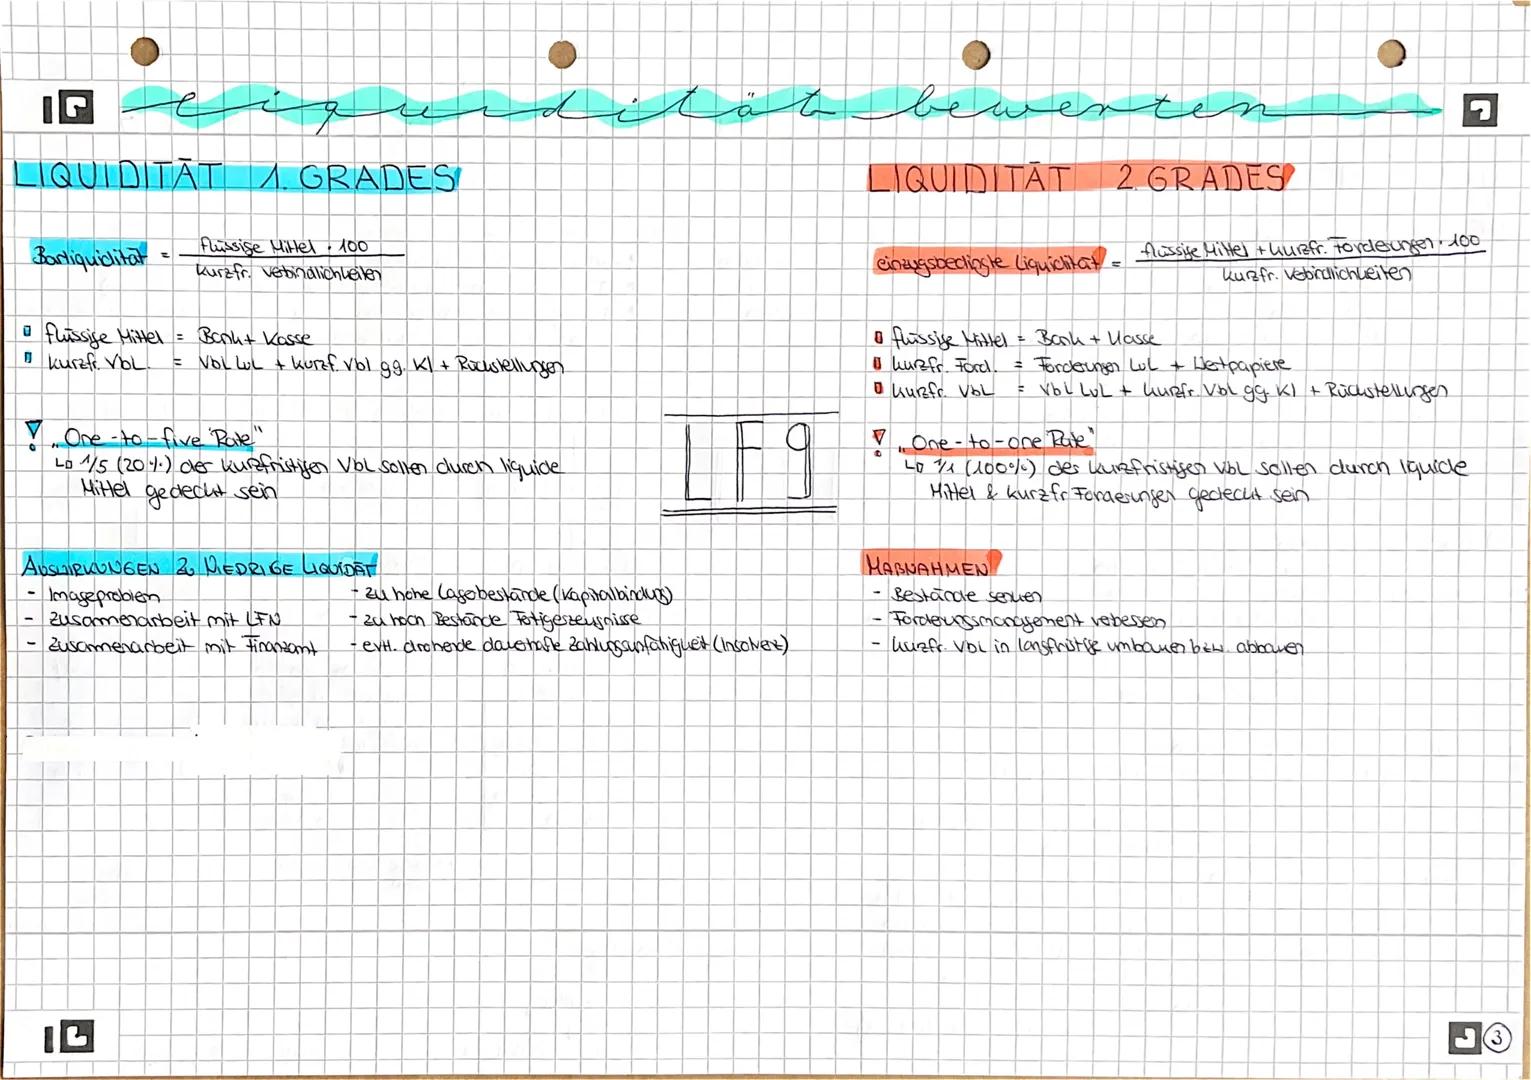 Liquidität bewerten
LIQUIDITÄT 1. GRADES
Barliquidität = flüssige Mittel · 100
kurzfr. Vebindlichkeiten
flüssige Mittel = Bank + Kasse
kurzfr. Vbl. = Vbl LuL + kurzf. Vbl gg. KI + Rückstellungen
! „One-to-five Rate"
↳ 1/5 (20%) der kurzfristigen Vbl sollen durch liquide
Mittel gedeckt sein
LIQUIDITÄT 2. GRADES
einzugsbedingte Liquidität = flüssige Mittel + kurzfr. Forderungen · 100
kurzfr. Vebindlichkeiten
flüssige Mittel = Bank + Kasse
kurzfr. Ford. = Forderungen LuL + Wertpapiere
kurzfr. Vbl = Vbl LuL + kurzfr. Vbl gg. KI + Rückstellungen
! „One-to-one Rate"
↳ 1/1 (100%) des kurzfristigen Vbl sollen durch liquide
Mittel & kurzfr. Forderungen gedeckt sein
LF9
AUSWIRKUNGEN ZU NIEDRIGE LIQUIDÄT
- Imageproblem
- Zusammenarbeit mit LFN
- Zusammenarbeit mit Finanzamt
- zu hohe Lagerbestände (Kapitalbindung)
- zu hoch Bestände Fertigerzeugnisse
- evtl. drohende dauerhafte Zahlungsunfähigkeit (Insolvenz)
MAßNAHMEN
- Bestände senken
- Forderungsmanagement verbessern
- kurzfr. Vbl in langfristige umbauen bzw. abbauen
3